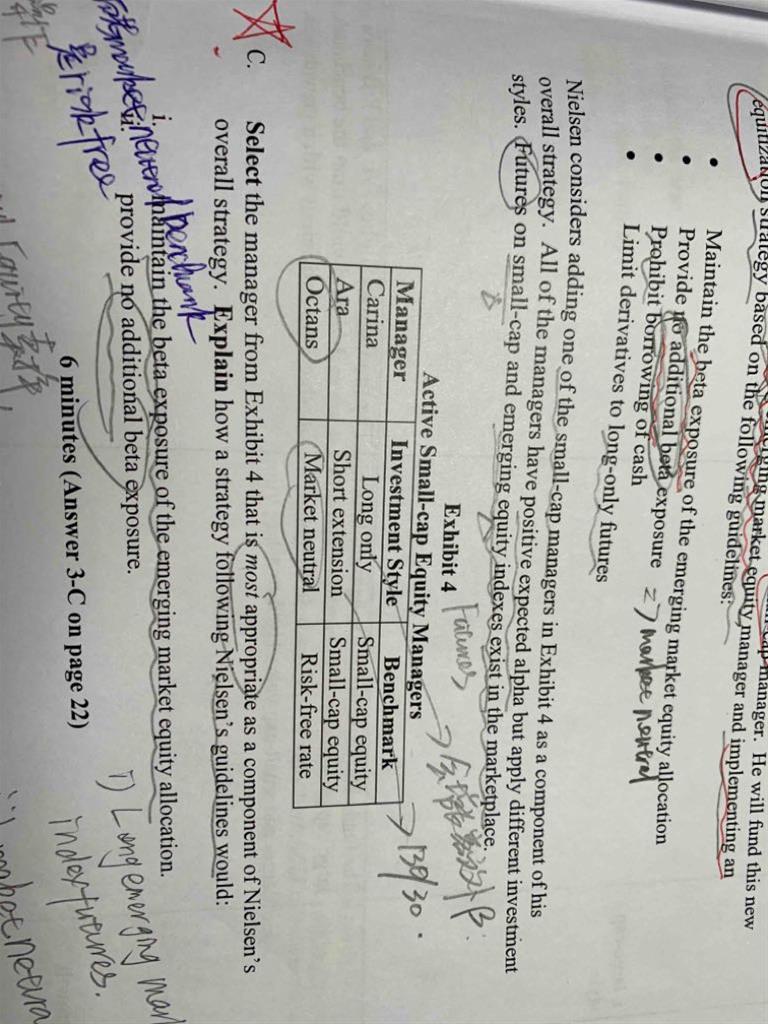 equitization strategy based on the following guidelines:
emerging market equity manager and implementing an
manager. He will fund this new
• Maintain the beta exposure of the emerging market equity allocation
• Provide no additional beta exposure => market neutral
• Prohibit borrowing of cash
• Limit derivatives to long-only futures
Nielsen considers adding one of the small-cap managers in Exhibit 4 as a component of his
overall strategy. All of the managers have positive expected alpha but apply different investment
styles. Futures on small-cap and emerging equity indexes exist in the marketplace.
Exhibit 4
Futures
Active Small-cap Equity Managers
Manager Investment Style Benchmark
Carina Long only Small-cap equity
Ara Short extension Small-cap equity
Octans Market neutral Risk-free rate
→ 130/30.
C. Select the manager from Exhibit 4 that is most appropriate as a component of Nielsen's
overall strategy. Explain how a strategy following Nielsen's guidelines would:
i. maintain the beta exposure of the emerging market equity allocation.
ii. provide no additional beta exposure.
benchmark
是risk free
6 minutes (Answer 3-C on page 22)
i) Long emerging mar
index futures.